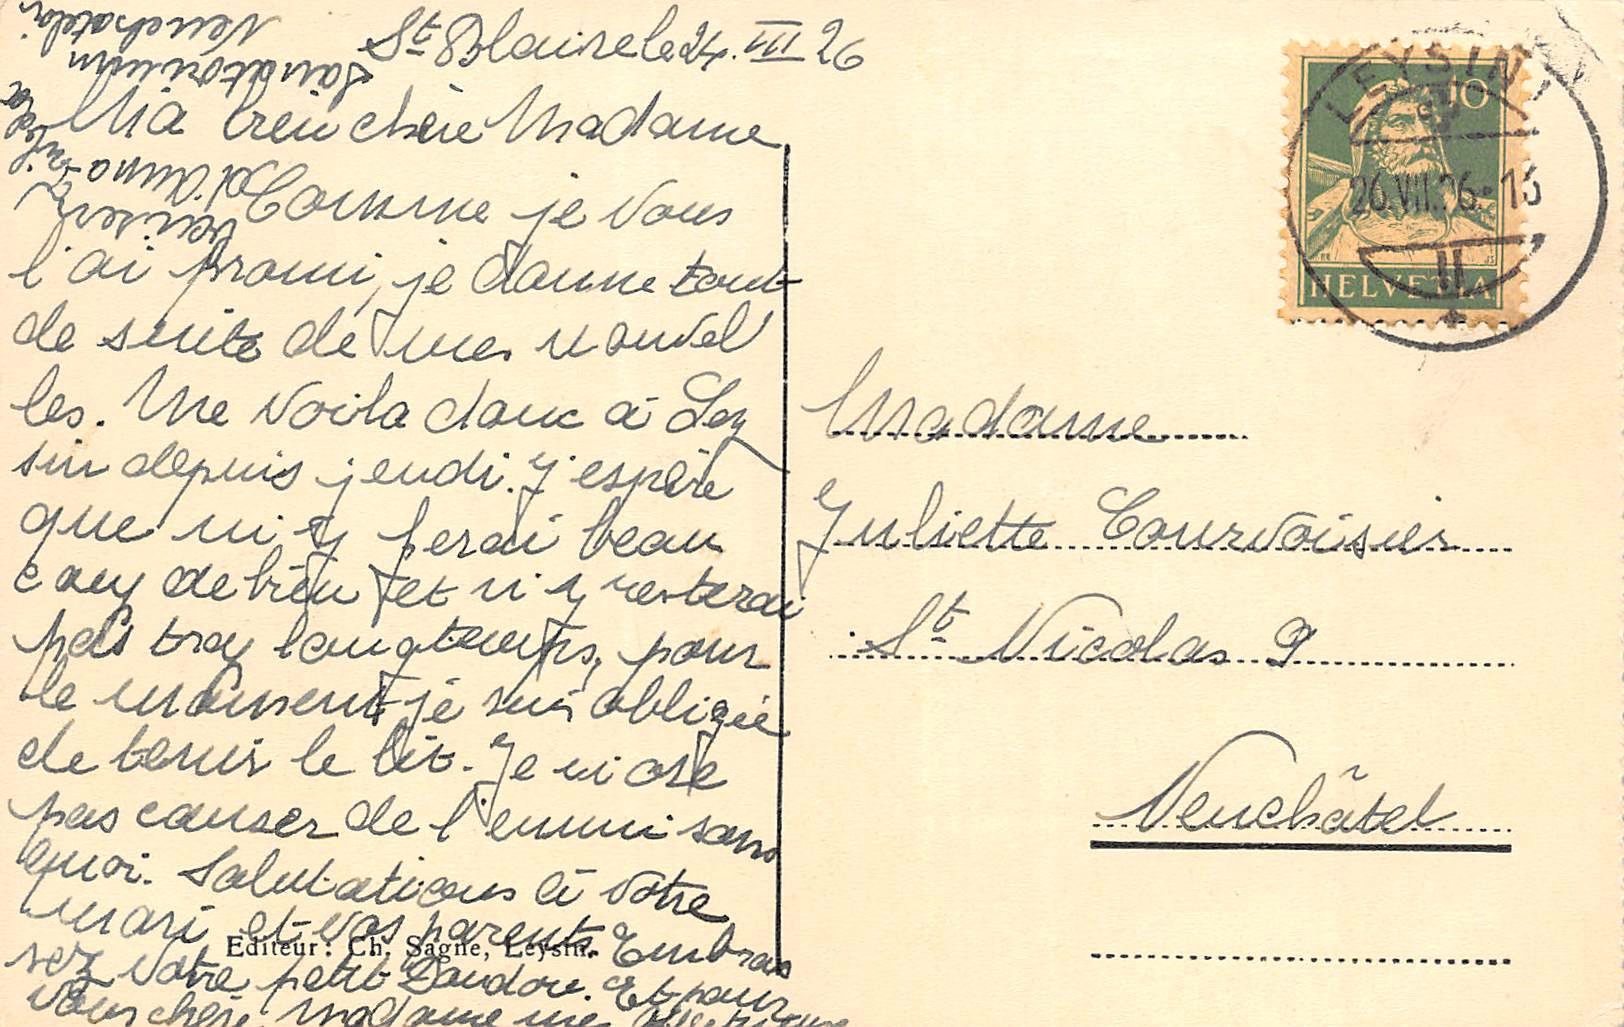 St Blaise le 24. III 26
Ma bien chère Madame
Comme je vous
l'ai promi, je donne tout
de suite de mes nouvel
les. Me voila donc à Ley
sin depuis jeudi. J'espère
que m'y ferai beau
coup de bien et n'y resterai
pas trop longtemps, pour
le moment je suis obligée
de tenir le lit. Je n'ose
pas causer de l'ennui sans
quoi. Salutations à votre
mari et vos parents. Embras
sez votre petit Doudou. Et pour
vous chère Madame une
baiser
d'Anna
Sanatorium
Neuchatelois
Editeur: Ch. Sagne, Leysin.
LEYSIN
10
26.VII.26.-13
II
HELVETIA
Madame
Juliette Courvoisier
St Nicolas 9
Neuchâtel